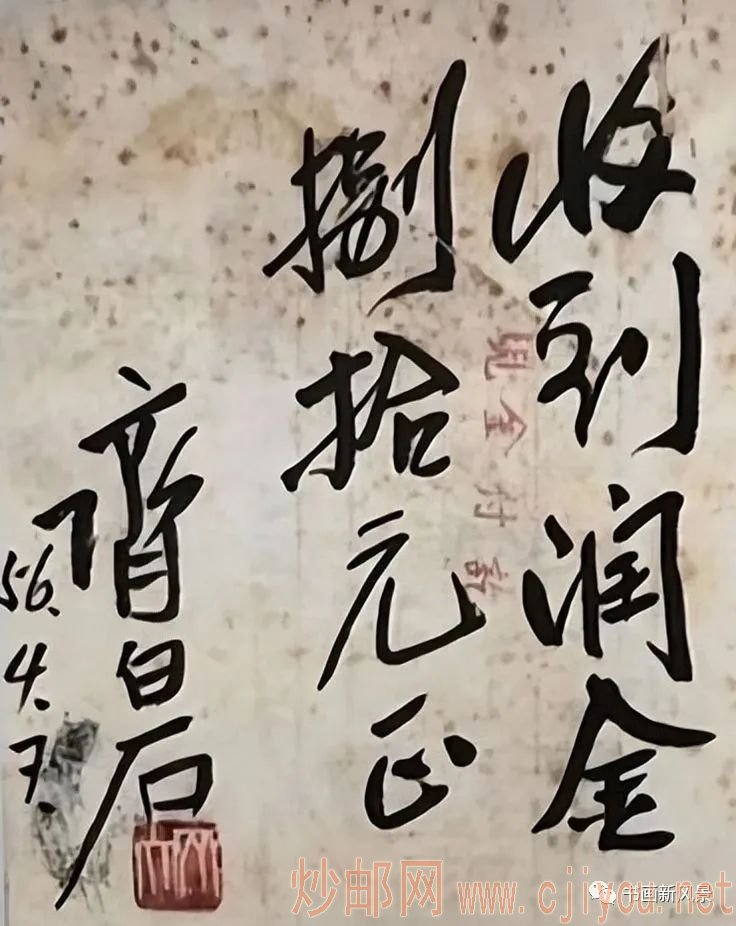 收到润金
捌拾元正
齊白石
56.4.7.
现金付讫
炒邮网 www.cjiyou.net
书画新风景